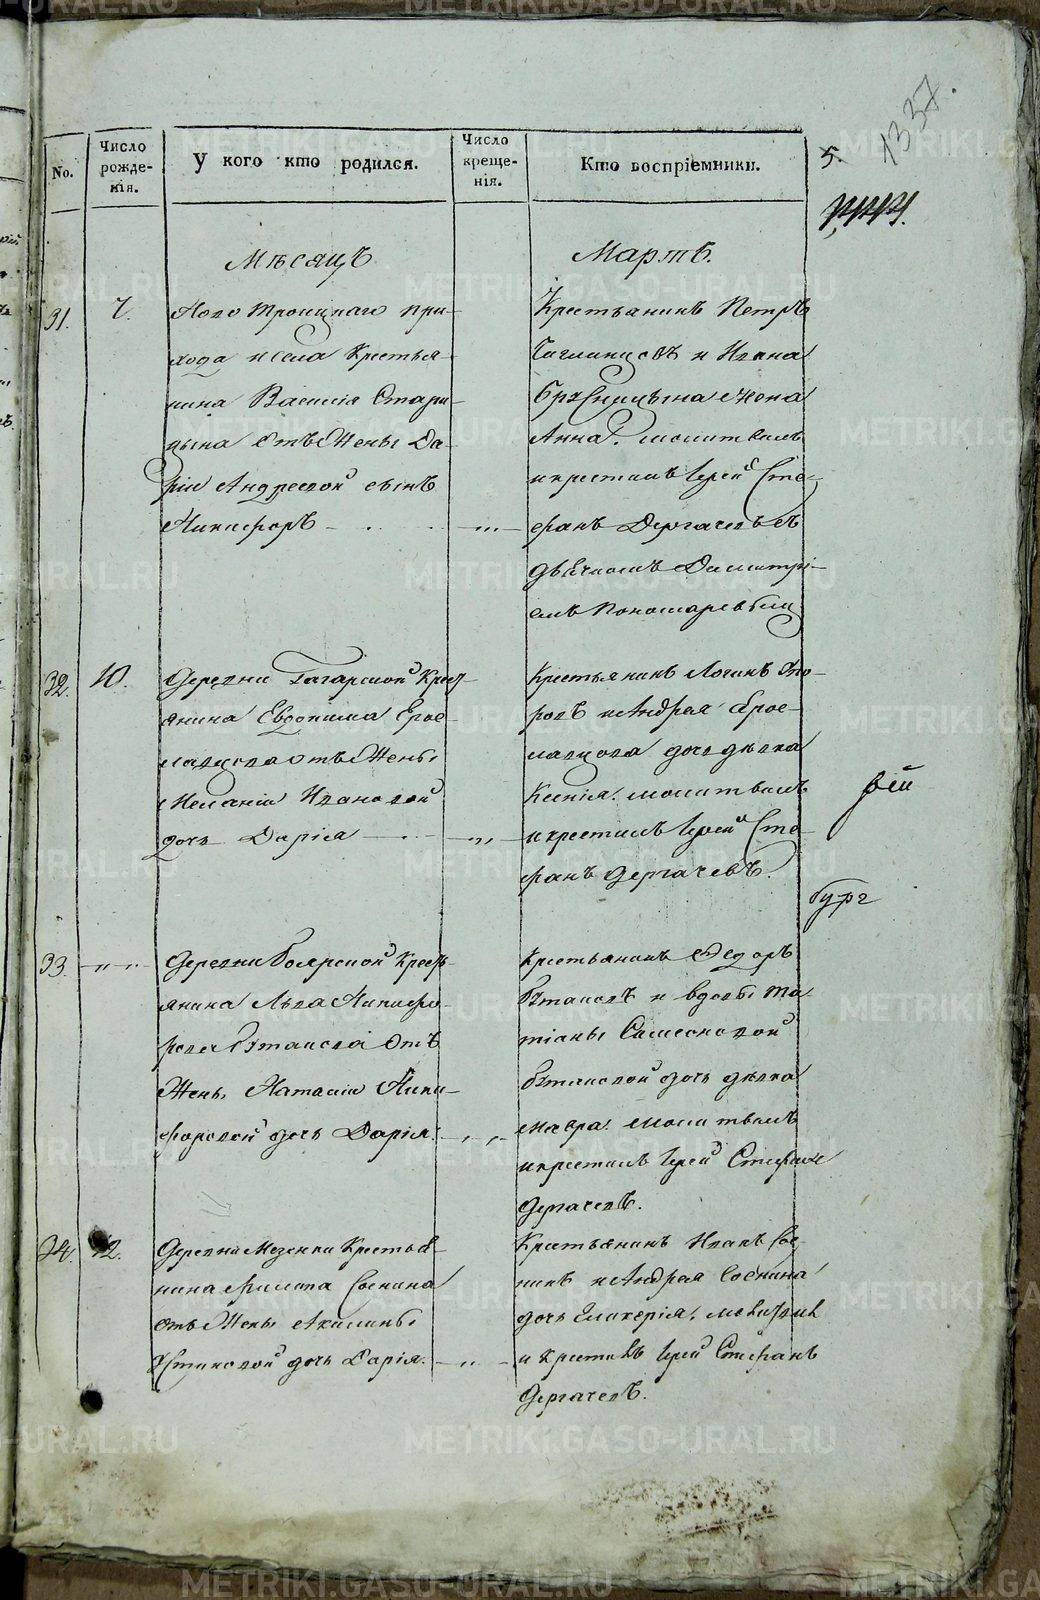 1337.
No.
Число рожде-нія.
У кого кто родился.
Число креще-нія.
Кто воспріемники.
5.
Мѣсяцъ
Мартъ.
31.
7.
Ново Троицкаго при-
хода и села Крестья-
нина Василія Стари-
цына отъ Жены Да-
ріи Андреевой сынъ
Никифоръ
Крестьянинъ Петръ
и Ивана
жена
Анна. молитвилъ
и крестилъ Іерей Сте-
фанъ Дергачевъ съ
дьячкомъ Димитрі-
емъ Пономаревым
32.
10.
Деревни Гагарской Крест-
янина Евдокима Брос-
ладцова отъ Жены
Меланіи Ивановой
дочь Дарія
Крестьянинъ Логинъ
и Андрея Брос-
ладцова дочь дѣвка
Ксенія. молитвилъ
и крестилъ Іерей Сте-
фанъ Дергачевъ.
рій
бург
33.
Деревни Боярской Крест-
янина Льва Никифо-
рова отъ
Жены Наталіи Ники-
форовой дочь Дарія.
Крестьянинъ Федоръ
и вдовы Та-
тіаны Симеоновой
дочь дѣвка
Мавра. молитвилъ
и крестилъ Іерей Стефанъ
Дергачевъ.
34.
12.
Деревни Мезенки Крестья-
нина Филипа Соснина
отъ Жены Акилины
Устиновой дочь Дарія.
Крестьянинъ Иванъ Сос-
нинъ и Андрея Соснина
дочь Гликерія. молитвилъ
и крестилъ Іерей Стефанъ
Дергачевъ.
METRIKI.GASO-URAL.RU